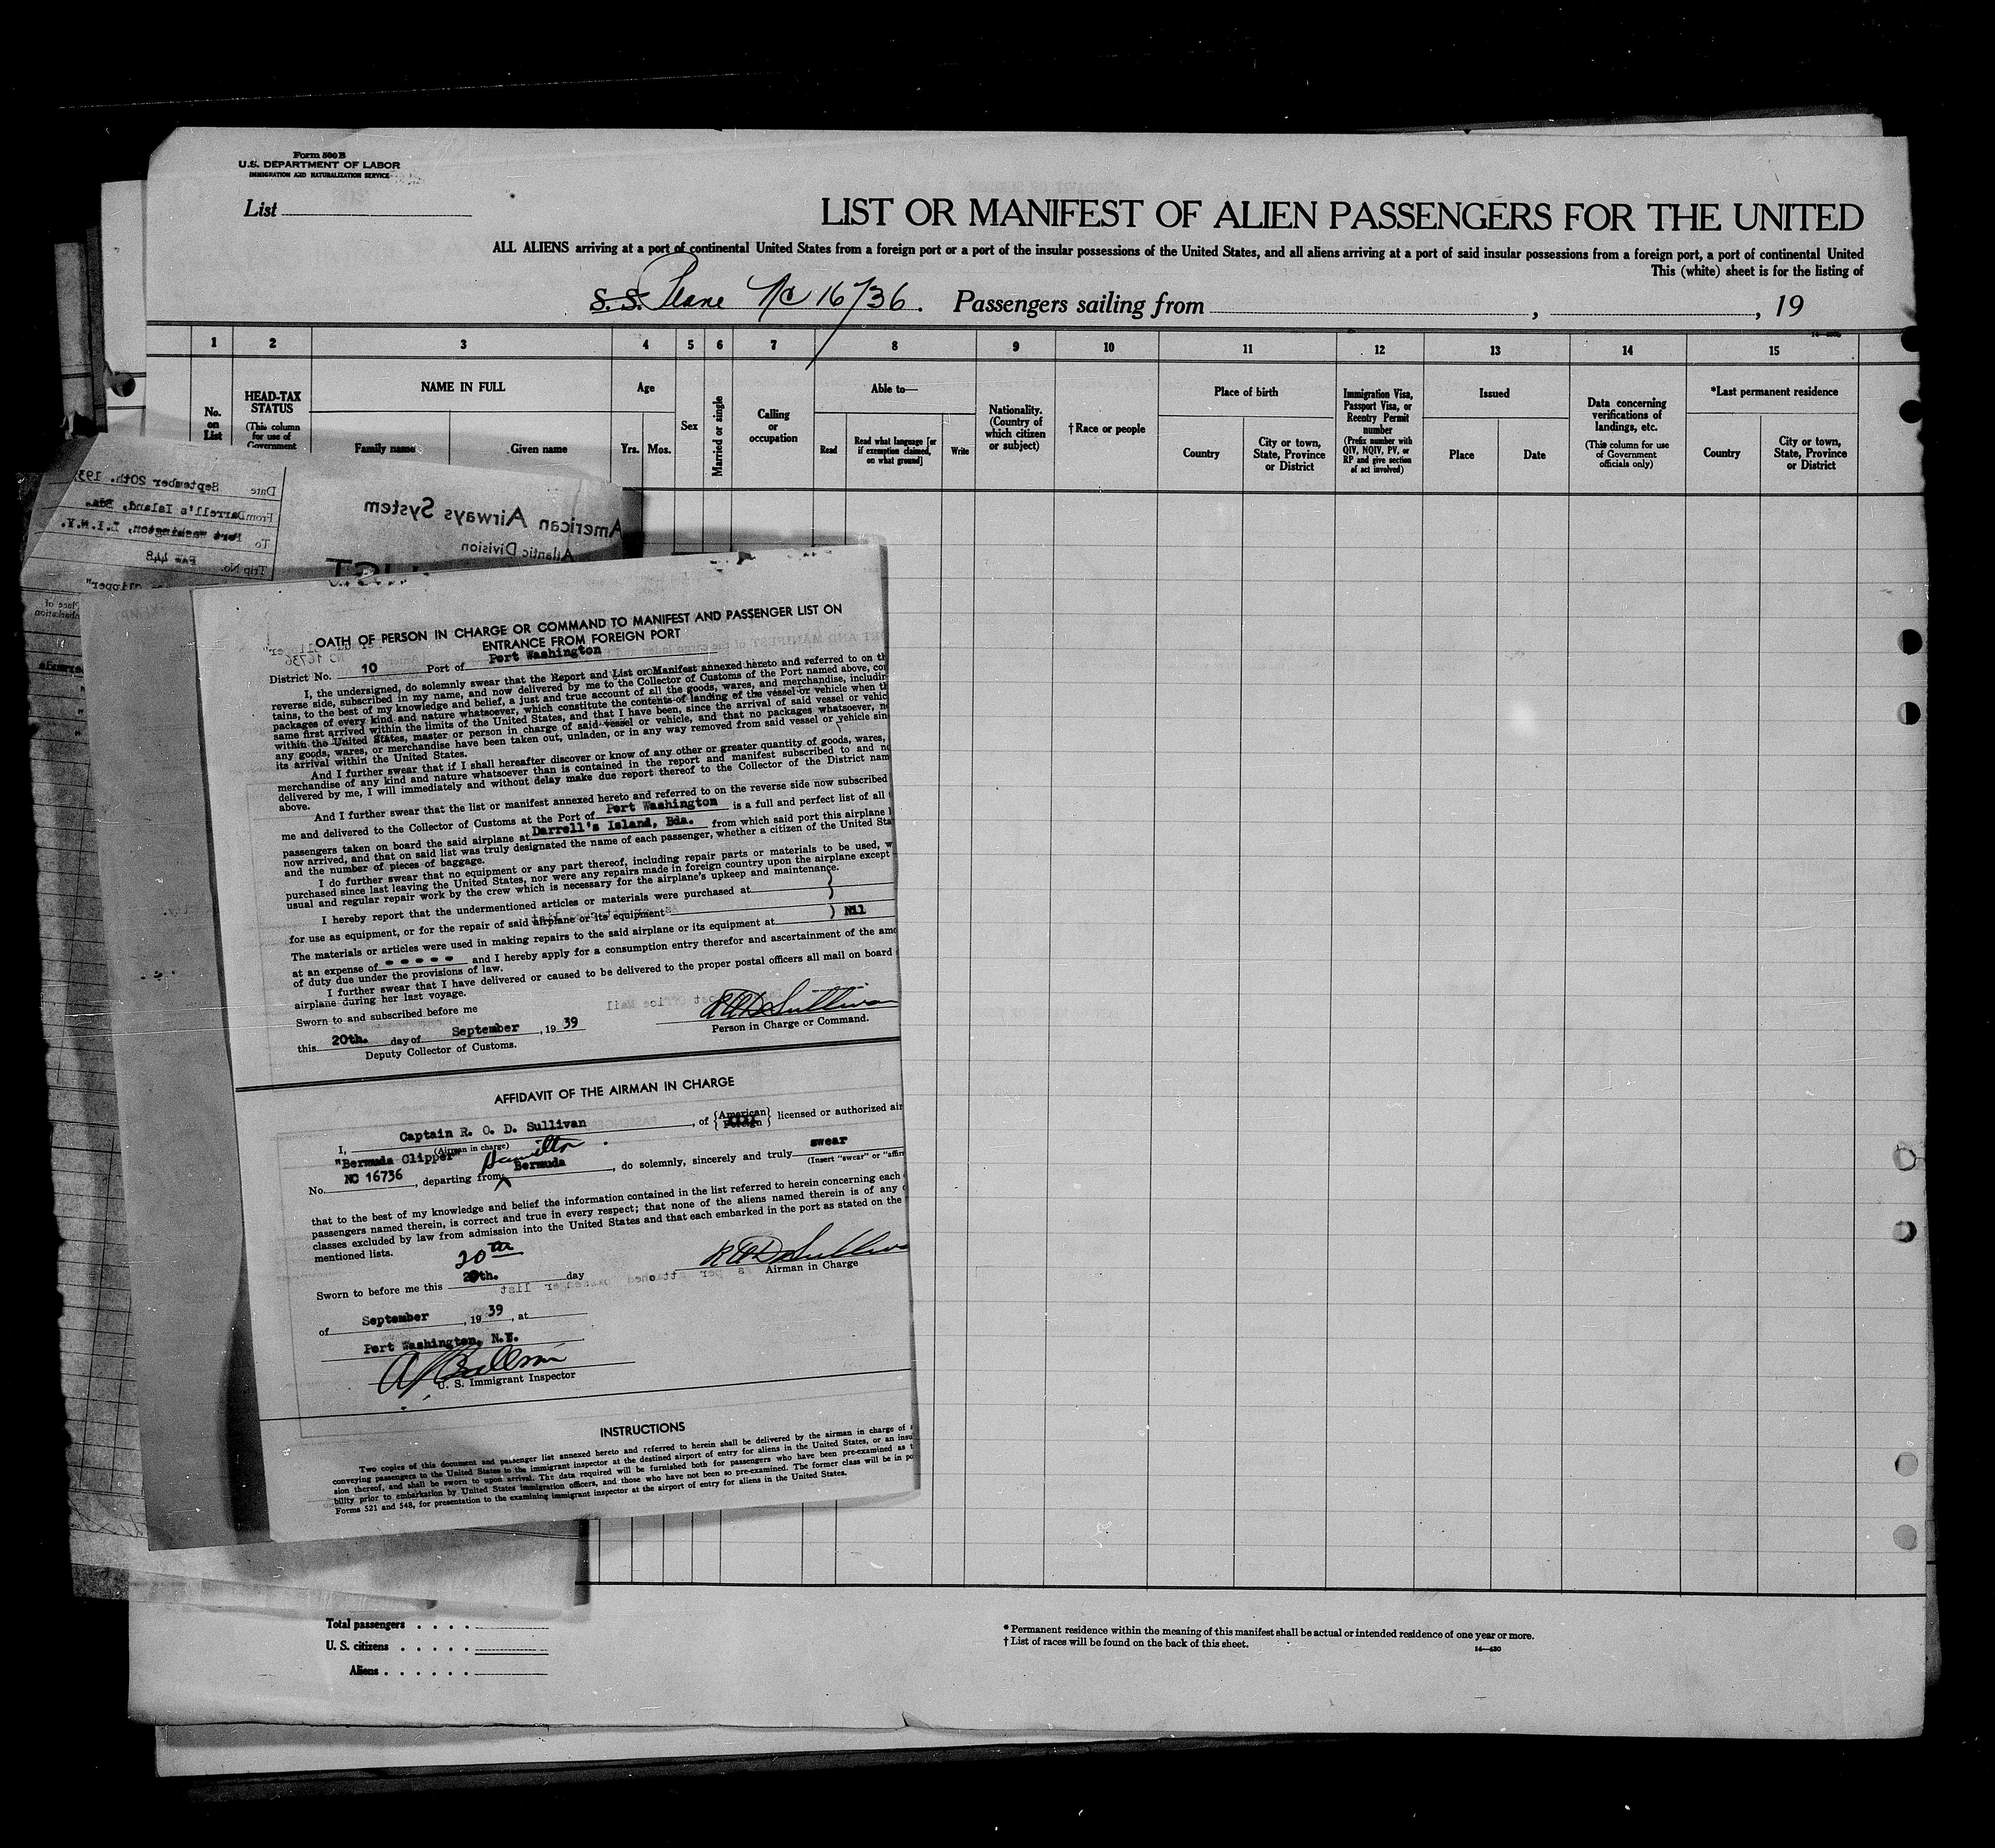 Form 500 B
U.S. DEPARTMENT OF LABOR
IMMIGRATION AND NATURALIZATION SERVICE
List
LIST OR MANIFEST OF ALIEN PASSENGERS FOR THE UNITED
ALL ALIENS arriving at a port of continental United States from a foreign port or a port of the insular possessions of the United States, and all aliens arriving at a port of said insular possessions from a foreign port, a port of continental United
This (white) sheet is for the listing of
S. S. Plane NC 16736. Passengers sailing from , , 19
1 2 3 4 5 6 7 8 9 10 11 12 13 14 15
No. on List
HEAD-TAX STATUS
(This column for use of Government
NAME IN FULL
Family name
Given name
Age
Yrs.
Mos.
Sex
Married or single
Calling or occupation
Able to—
Read
Read what language [or if exemption claimed, on what ground]
Write
Nationality. (Country of which citizen or subject)
†Race or people
Place of birth
Country
City or town, State, Province or District
Immigration Visa, Passport Visa, or Reentry Permit number
(Prefix number with QIV, NQIV, PV, or RP and give section of act involved)
Issued
Place
Date
Data concerning verifications of landings, etc.
(This column for use of Government officials only)
*Last permanent residence
Country
City or town, State, Province or District
Date September 20th. 193
From Darrell's Island, Bda.
To Port Washington, L.I.N.Y.
Trip No. PAW 448
American Airways System
Atlantic Division
OATH OF PERSON IN CHARGE OR COMMAND TO MANIFEST AND PASSENGER LIST ON
ENTRANCE FROM FOREIGN PORT
District No. 10 Port of Port Washington
I, the undersigned, do solemnly swear that the Report and List or Manifest annexed hereto and referred to on th
reverse side, subscribed in my name, and now delivered by me to the Collector of Customs of the Port named above, con
tains, to the best of my knowledge and belief, a just and true account of all the goods, wares, and merchandise, includin
packages of every kind and nature whatsoever, which constitute the contents of landing of the vessel or vehicle when th
same first arrived within the limits of the United States, and that I have been, since the arrival of said vessel or vehic
within the United States, master or person in charge of said vessel or vehicle, and that no packages whatsoever, n
any goods, wares, or merchandise have been taken out, unladen, or in any way removed from said vessel or vehicle sin
its arrival within the United States.
And I further swear that if I shall hereafter discover or know of any other or greater quantity of goods, wares,
merchandise of any kind and nature whatsoever than is contained in the report and manifest subscribed to and no
delivered by me, I will immediately and without delay make due report thereof to the Collector of the District nam
above.
And I further swear that the list or manifest annexed hereto and referred to on the reverse side now subscribed
me and delivered to the Collector of Customs at the Port of Port Washington is a full and perfect list of all
passengers taken on board the said airplane at Darrell's Island, Bda. from which said port this airplane
now arrived, and that on said list was truly designated the name of each passenger, whether a citizen of the United Sta
and the number of pieces of baggage.
I do further swear that no equipment or any part thereof, including repair parts or materials to be used, w
purchased since last leaving the United States, nor were any repairs made in foreign country upon the airplane except
usual and regular repair work by the crew which is necessary for the airplane's upkeep and maintenance.
I hereby report that the undermentioned articles or materials were purchased at
for use as equipment, or for the repair of said airplane or its equipment ) Nil
The materials or articles were used in making repairs to the said airplane or its equipment at
at an expense of - - - - - and I hereby apply for a consumption entry therefor and ascertainment of the amo
of duty due under the provisions of law.
I further swear that I have delivered or caused to be delivered to the proper postal officers all mail on board
airplane during her last voyage.
Sworn to and subscribed before me
R O D Sullivan
this 20th. day of September , 19 39
Person in Charge or Command.
Deputy Collector of Customs.
AFFIDAVIT OF THE AIRMAN IN CHARGE
I, Captain R. O. D. Sullivan , of {American Foreign} licensed or authorized air
(Airman in charge)
"Bermuda Clipper" Hamilton
No. NC 16736 , departing from Bermuda , do solemnly, sincerely and truly swear
(Insert "swear" or "affir
that to the best of my knowledge and belief the information contained in the list referred to herein concerning each
passengers named therein, is correct and true in every respect; that none of the aliens named therein is of any
classes excluded by law from admission into the United States and that each embarked in the port as stated on the
mentioned lists.
20th
Sworn to before me this 20th. day
R O D Sullivan
Airman in Charge
of September , 19 39 , at
Port Washington, N.Y.
U. S. Immigrant Inspector
INSTRUCTIONS
Two copies of this document and passenger list annexed hereto and referred to herein shall be delivered by the airman in charge of a
conveying passengers to the United States to the immigrant inspector at the destined airport of entry for aliens in the United States, or an insu
sion thereof, and shall be sworn to upon arrival. The data required will be furnished both for passengers who have been pre-examined as t
bility prior to embarkation by United States immigration officers, and those who have not been so pre-examined. The former class will be in po
Forms 521 and 548, for presentation to the examining immigrant inspector at the airport of entry for aliens in the United States.
Total passengers . . . .
U. S. citizens . . . . .
Aliens . . . . . .
* Permanent residence within the meaning of this manifest shall be actual or intended residence of one year or more.
† List of races will be found on the back of this sheet.
14—430